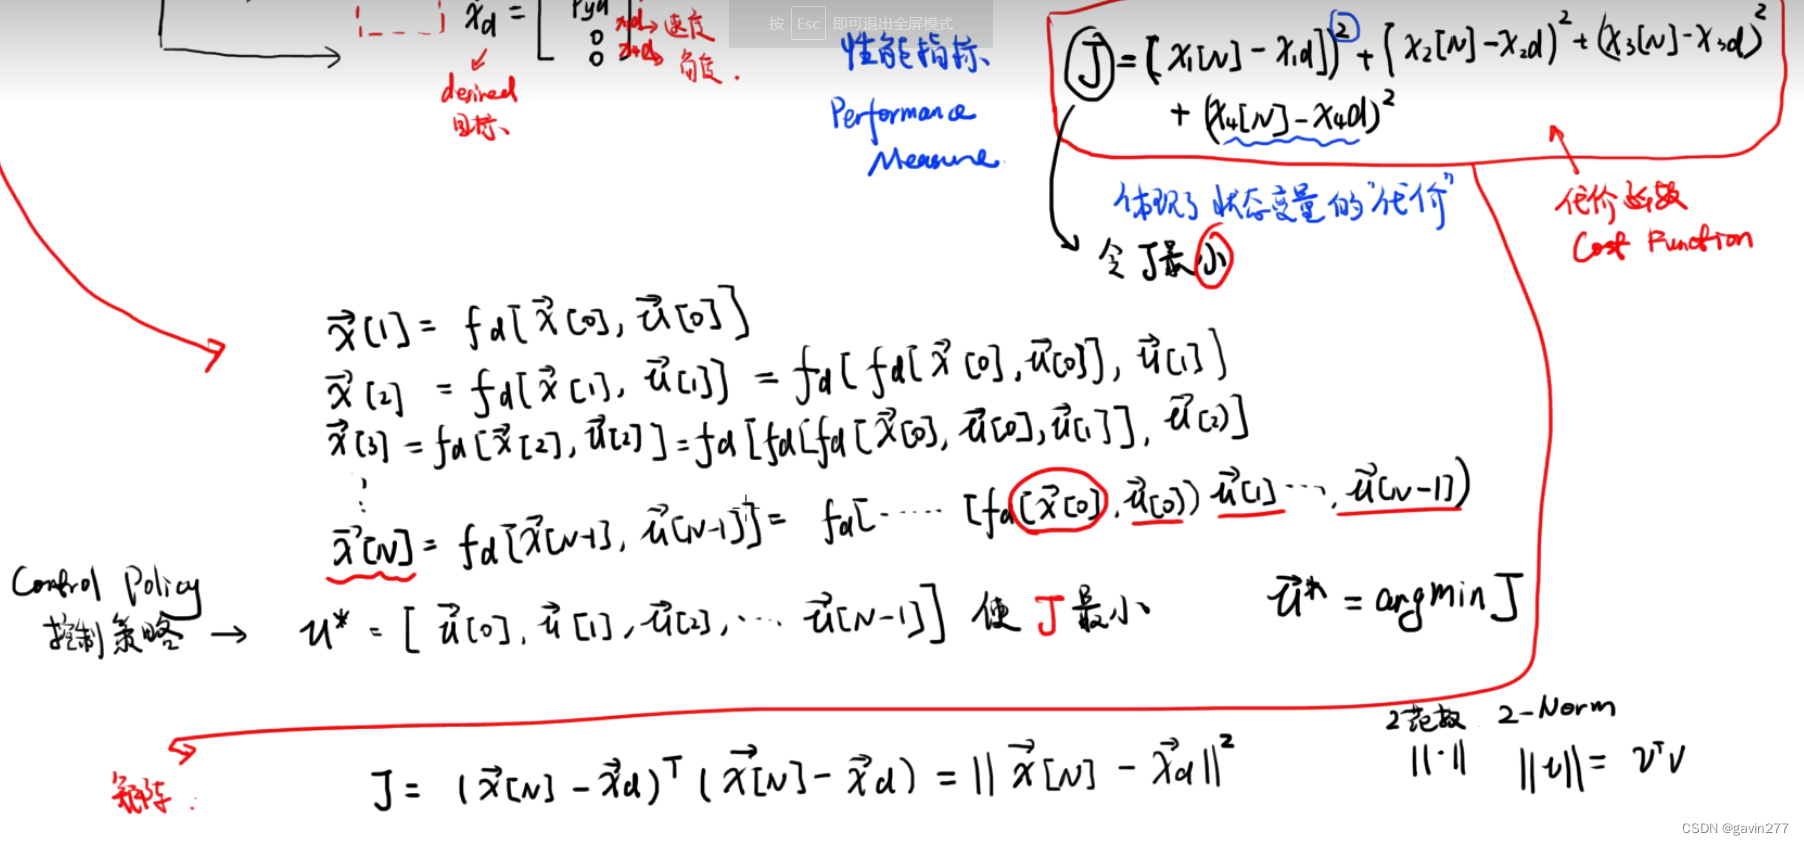 按 Esc 即可退出全屏模式
x⃗d = [ Pyd
0 xd→ 速度
0 角度.
desired
目标
性能指标
Performance
Measure
J = [x₁[N] - x₁d])² + [x₂[N] - x₂d)² + (x₃[N] - x₃d)²
+ (x₄[N] - x₄d)²
体现了状态变量的"代价"
代价函数
Cost Function
令J最小
x⃗[1] = fd[x⃗[0], u⃗[0]]
x⃗[2] = fd[x⃗[1], u⃗[1]] = fd[fd[x⃗[0], u⃗[0]], u⃗[1]]
x⃗[3] = fd[x⃗[2], u⃗[2]] = fd[fd[fd[x⃗[0], u⃗[0], u⃗[1]], u⃗[2)]
⋮
x⃗[N] = fd[x⃗[N-1], u⃗[N-1]] = fd[ ····· [fd[x⃗[0], u⃗[0]) u⃗[1] ···, u⃗[N-1])
Control Policy
控制策略 → u* = [u⃗[0], u⃗[1], u⃗[2], ··· u⃗[N-1]] 使 J 最小 u⃗* = argmin J
2范数 2-Norm
||·|| ||v|| = vᵀv
矩阵. J = (x⃗[N] - x⃗d)ᵀ (x⃗[N] - x⃗d) = ||x⃗[N] - x⃗d||²
CSDN @gavin277